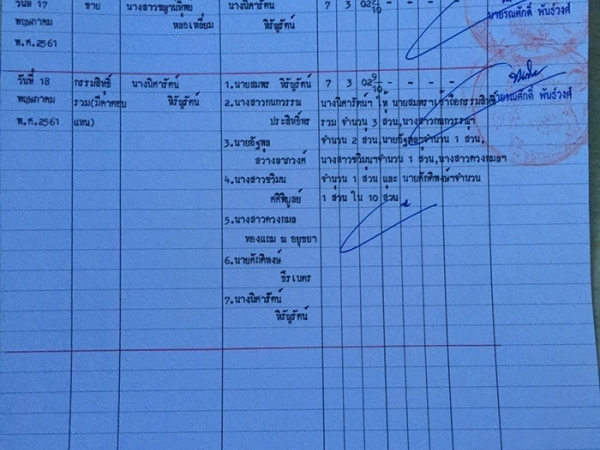 วันที่ 17 ขาย นางสาวชญานิทิพย์ นางนิศารัตน์ 7 3 02 9/10 - - - -
พฤษภาคม หล่อเหลี่ยม หิรัญรัตน์ นายวรณศักดิ์ พันธ์วงศ์
พ.ศ.2561
วันที่ 18 กรรมสิทธิ์ นางนิศารัตน์ 1.นายสมพร หิรัญรัตน์ 7 3 02 9/10 - - - -
พฤษภาคม รวม(มีค่าตอบ หิรัญรัตน์ 2.นางสาวกนกวรรณ นางนิศารัตน์ฯ ให้ นายสมพรฯเข้าถือกรรมสิทธิ์ นายวรณศักดิ์ พันธ์วงศ์
พ.ศ.2561 แทน) ประสิทธิ์พร รวม จำนวน 3 ส่วน,นางสาวกนกวรรณฯ
จำนวน 2 ส่วน,นายรัฐพลฯจำนวน 1 ส่วน,
3.นายรัฐพล
สว่างลาภวงค์ นางสาวชวิมนฯจำนวน 1 ส่วน,นางสาวดวงกมลฯ
4.นางสาวชวิมน จำนวน 1 ส่วน และ นายศักดิ์พงษ์ฯจำนวน
คดีพิบูลย์ 1 ส่วน ใน 10 ส่วน
5.นางสาวดวงกมล
ทองแถม ณ อยุธยา
6.นายศักดิ์พงษ์
ธีรเนตร
7.นางนิศารัตน์
หิรัญรัตน์